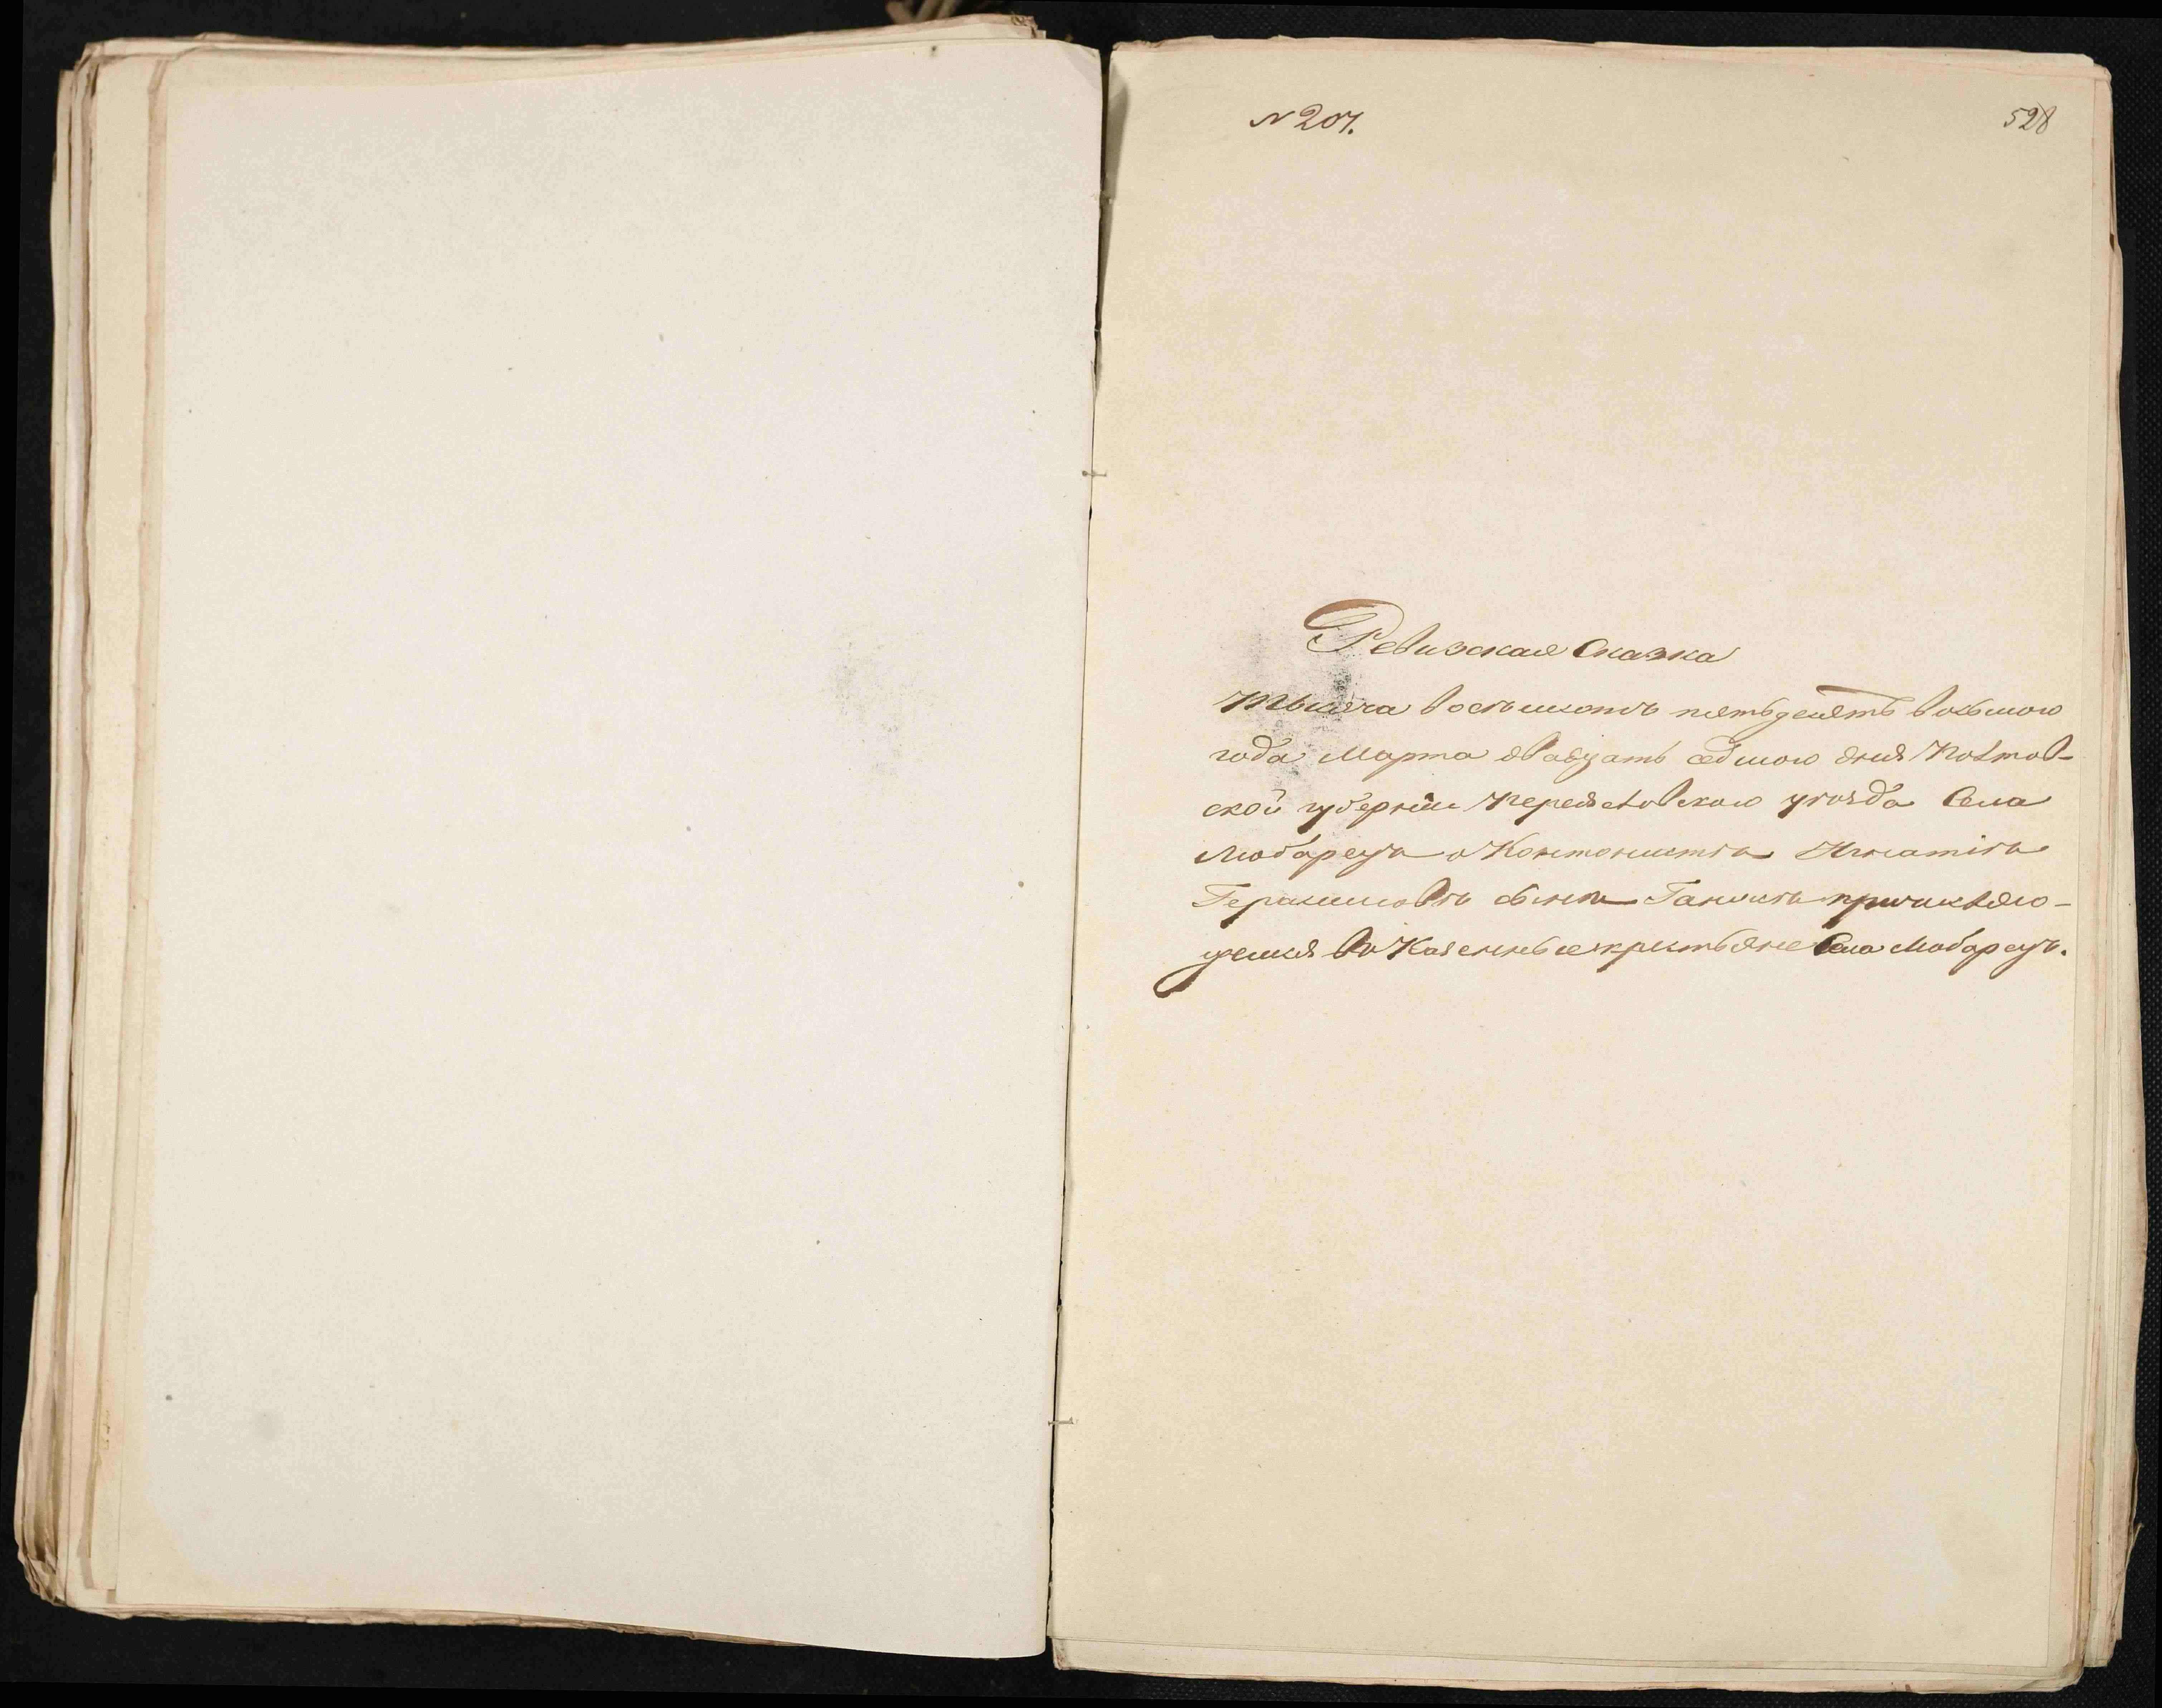 N 207.
528
Ревизская Сказка
Тысяча восьмисотъ пятьдесятъ восьмого
года Марта двадцать седмого дня Полтав-
ской губерніи Переяславского уѣзда Села
Любарецъ о Кантонистѣ
Герасимовѣ сынѣ причисляю-
щемся въ Казенные крестьяне Села Любарецъ.